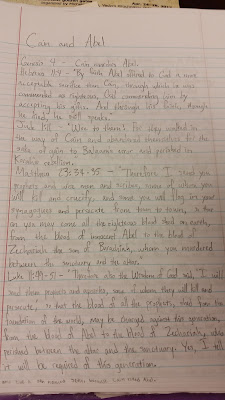 Cain and Abel
Genesis 4 - Cain murders Abel.
Hebrews 11:4 - "By faith Abel offered to God a more
acceptable sacrifice than Cain, through which he was
commended as righteous, God commending him by
accepting his gifts. And through his faith, though
he died, he still speaks."
Jude 1:11 - "Woe to them! For they walked in
the way of Cain and abandoned themselves for the
sake of gain to Balaam's error and perished in
Korah's rebellion.
Matthew 23:34-35 - "Therefore I send you
prophets and wise men and scribes, some of whom you
will kill and crucify, and some you will flog in your
synagogues and persecute from town to town, so that
on you may come all the righteous blood shed on earth,
from the blood of innocent Abel to the blood of
Zechariah the son of Barachiah, whom you murdered
between the sanctuary and the altar."
Luke 11:49-51 - "Therefore also the Wisdom of God said, 'I will
send them prophets and apostles, some of whom they will kill and
persecute,' so that the blood of all the prophets, shed from the
foundation of the world, may be charged against this generation,
from the blood of Abel to the blood of Zechariah, who
perished between the altar and the sanctuary. Yes, I tell
it will be required of this generation.